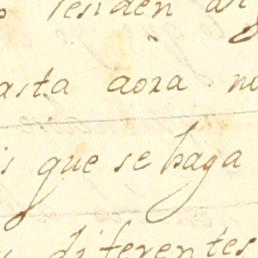 residen
asta aora no
que se haga
diferentes